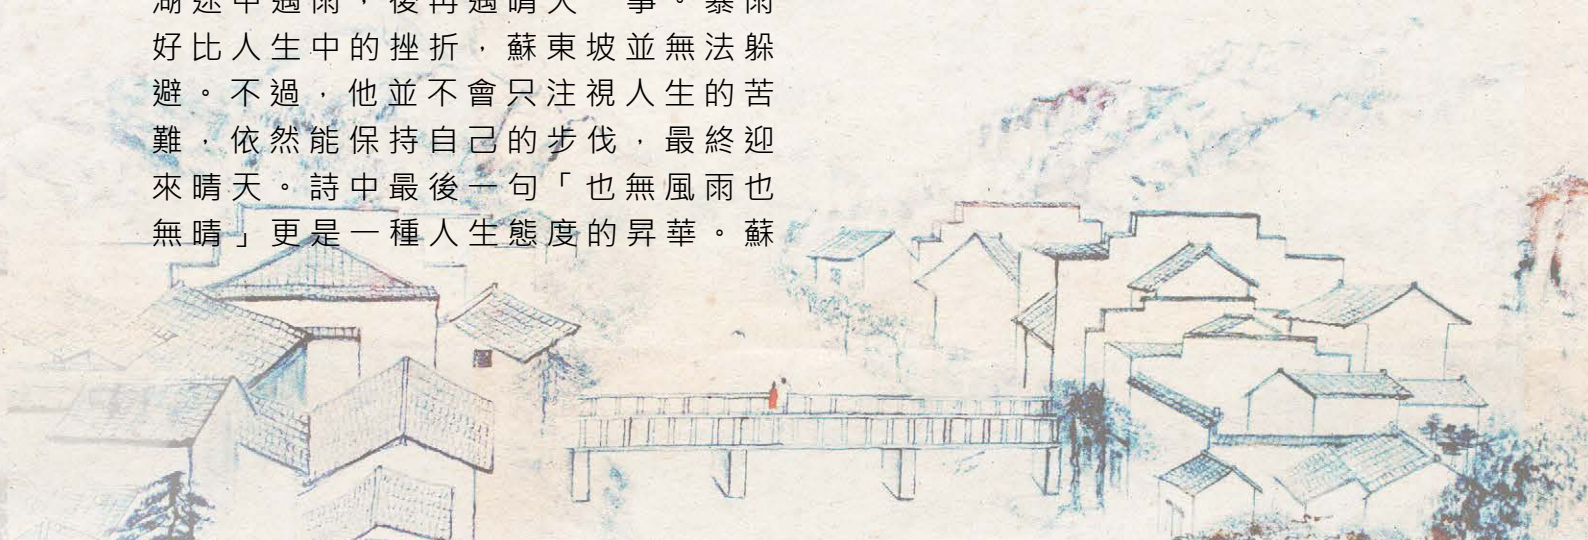 湖途中遇雨，後再遇晴天一事。暴雨
好比人生中的挫折，蘇東坡並無法躲
避。不過，他並不會只注視人生的苦
難，依然能保持自己的步伐，最終迎
來晴天。詩中最後一句「也無風雨也
無晴」更是一種人生態度的昇華。蘇